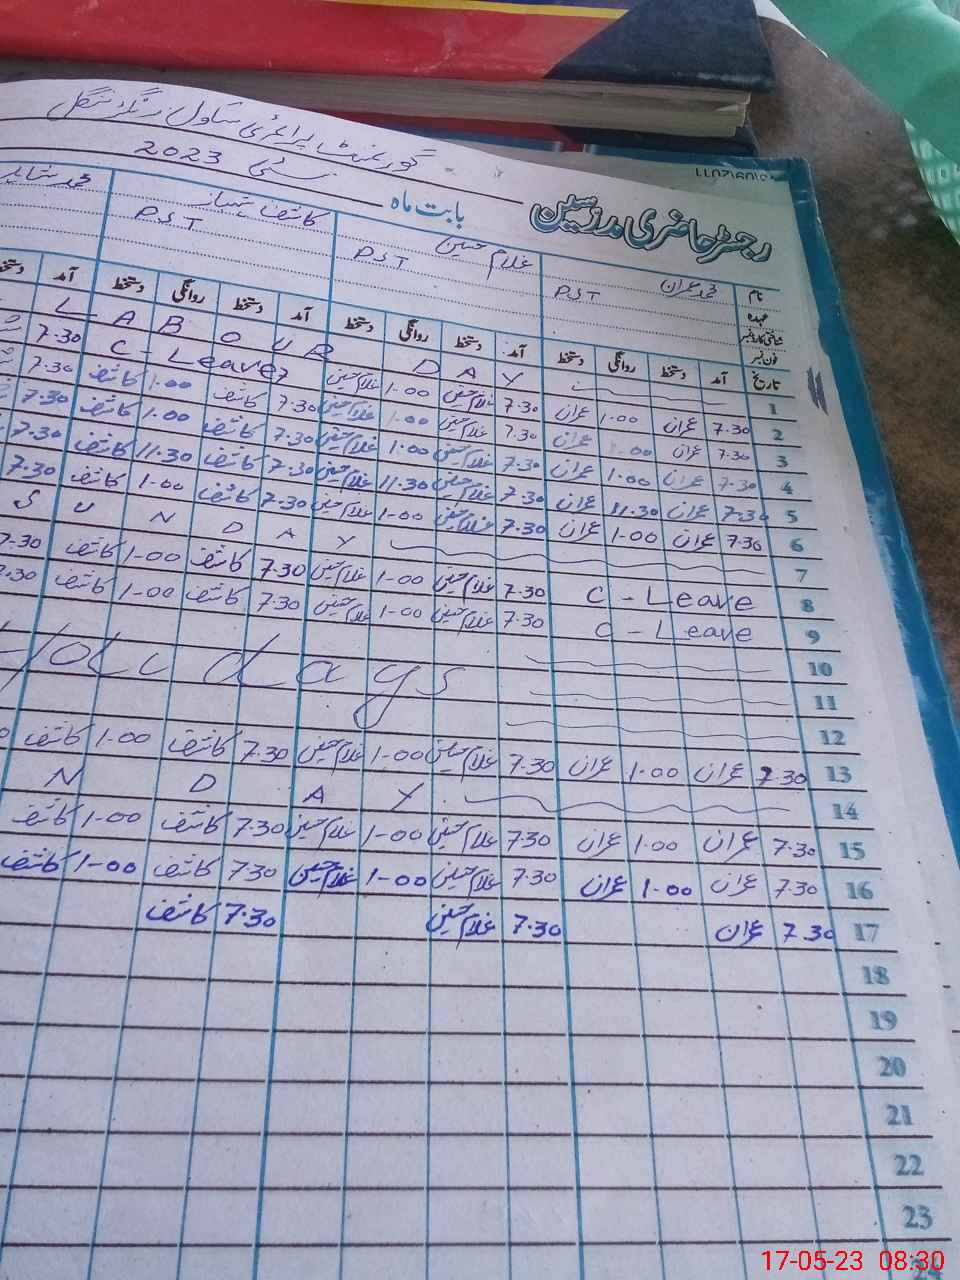 گورنمنٹ پرائمری سکول رنگڑ ننگل
رجسٹر حاضری مدرسین بابت ماہ مئی 2023
نام محمد عمران غلام حسین کاشف شہباز محمد شاہد
عہدہ PST PST PST
شناختی کارڈ نمبر
فون نمبر
تاریخ آمد دستخط روانگی دستخط آمد دستخط روانگی دستخط آمد دستخط روانگی دستخط آمد
1 LABOUR DAY
2 7.30 عمران 1.00 عمران 7.30 غلام حسین 1.00 غلام حسین C-Leave 7.30
3 7.30 عمران 1.00 عمران 7.30 غلام حسین 1.00 غلام حسین 7.30 کاشف 1.00 کاشف 7.30
4 7.30 عمران 1.00 عمران 7.30 غلام حسین 1.00 غلام حسین 7.30 کاشف 1.00 کاشف 7.30
5 7.30 عمران 11.30 عمران 7.30 غلام حسین 11.30 غلام حسین 7.30 کاشف 11.30 کاشف 7.30
6 7.30 عمران 1.00 عمران 7.30 غلام حسین 1.00 غلام حسین 7.30 کاشف 1.00 کاشف 7.30
7 SUNDAY
8 C-Leave 7.30 غلام حسین 1.00 غلام حسین 7.30 کاشف 1.00 کاشف 7.30
9 C-Leave 7.30 غلام حسین 1.00 غلام حسین 7.30 کاشف 1.00 کاشف 7.30
10
11 Holidays
12
13 7.30 عمران 1.00 عمران 7.30 غلام حسین 1.00 غلام حسین 7.30 کاشف 1.00 کاشف
14 N D A Y
15 7.30 عمران 1.00 عمران 7.30 غلام حسین 1.00 غلام حسین 7.30 کاشف 1.00 کاشف
16 7.30 عمران 1.00 عمران 7.30 غلام حسین 1.00 غلام حسین 7.30 کاشف 1.00 کاشف
17 7.30 عمران 7.30 غلام حسین 7.30 کاشف
18
19
20
21
22
23
24
17-05-23 08:30